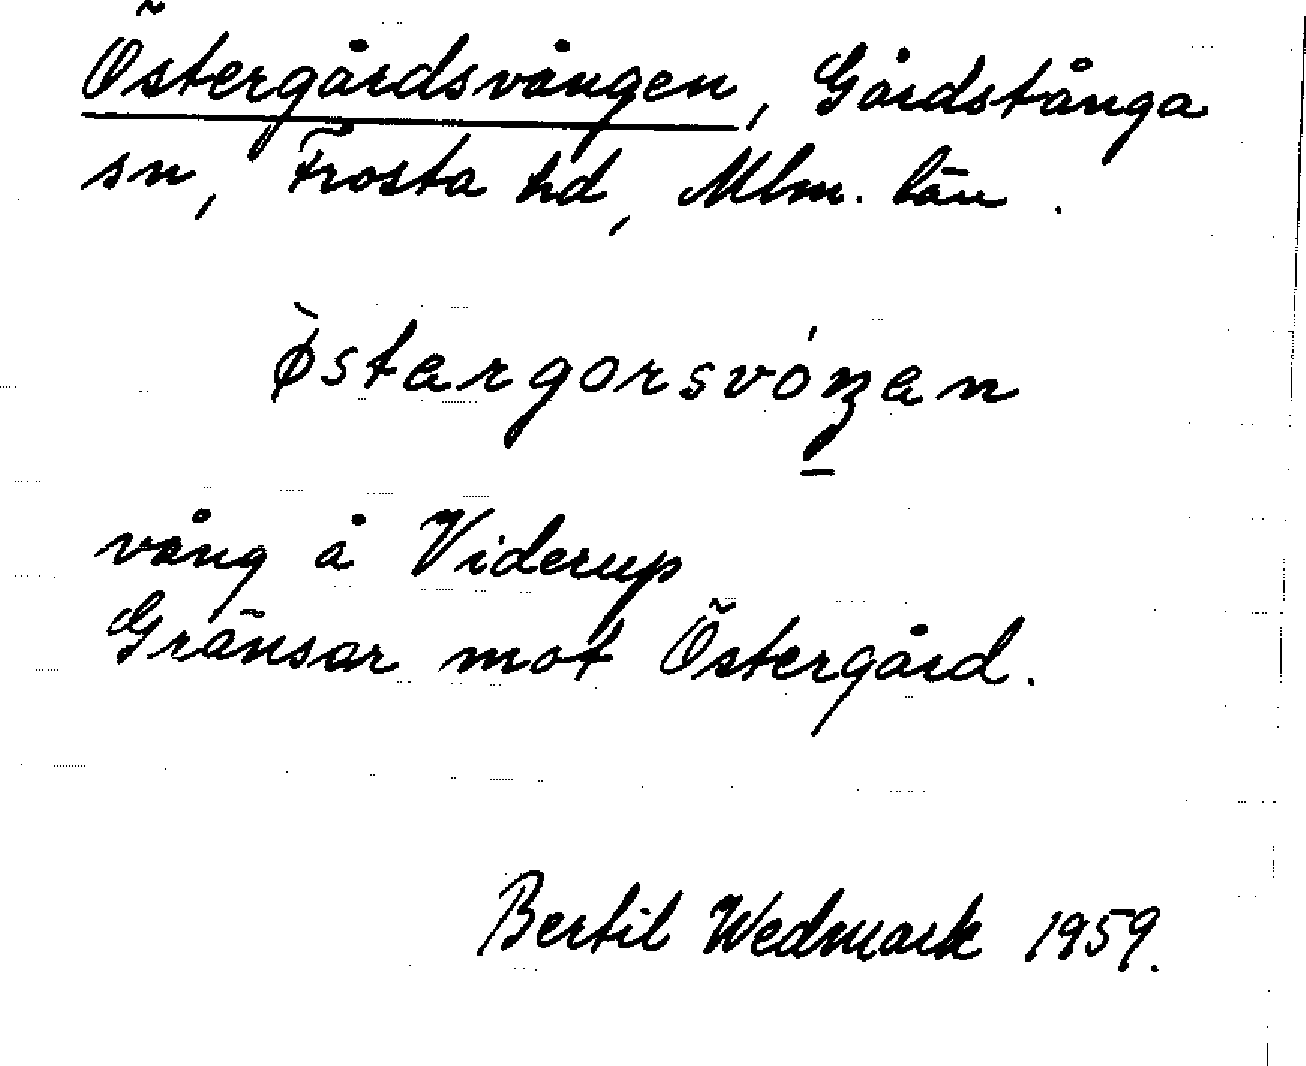 Östergårdsvången, Gårdstånga
sn, Frosta hd, Mlm. län.
ø̀stargorsvóŋan
vång å Viderup
Gränsar mot Östergård.
Bertil Wedmark 1959.